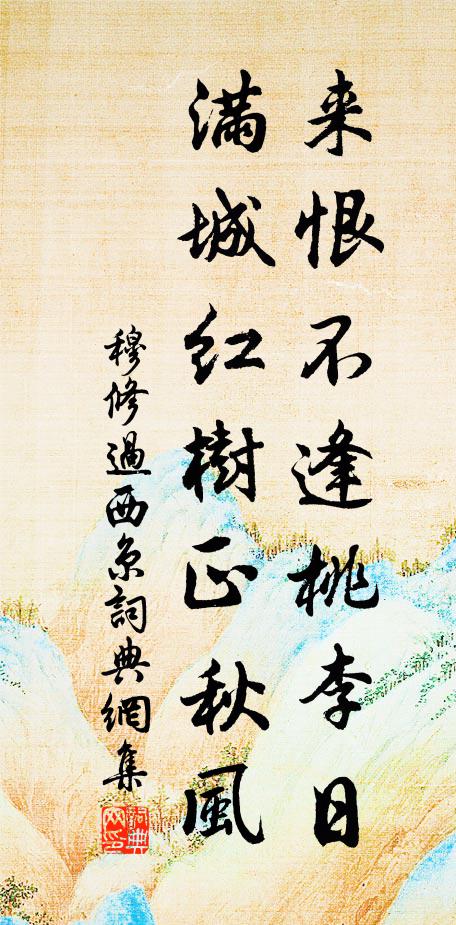 来恨不逢桃李日
滿城紅樹正秋風
穆修過西京詞典網集
詞典網印